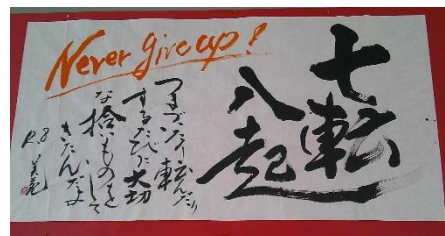 Never give up!
七転
八起
つまづいたり転んだり
するたびに大切
な拾いものをして
きたんだよ
R.8